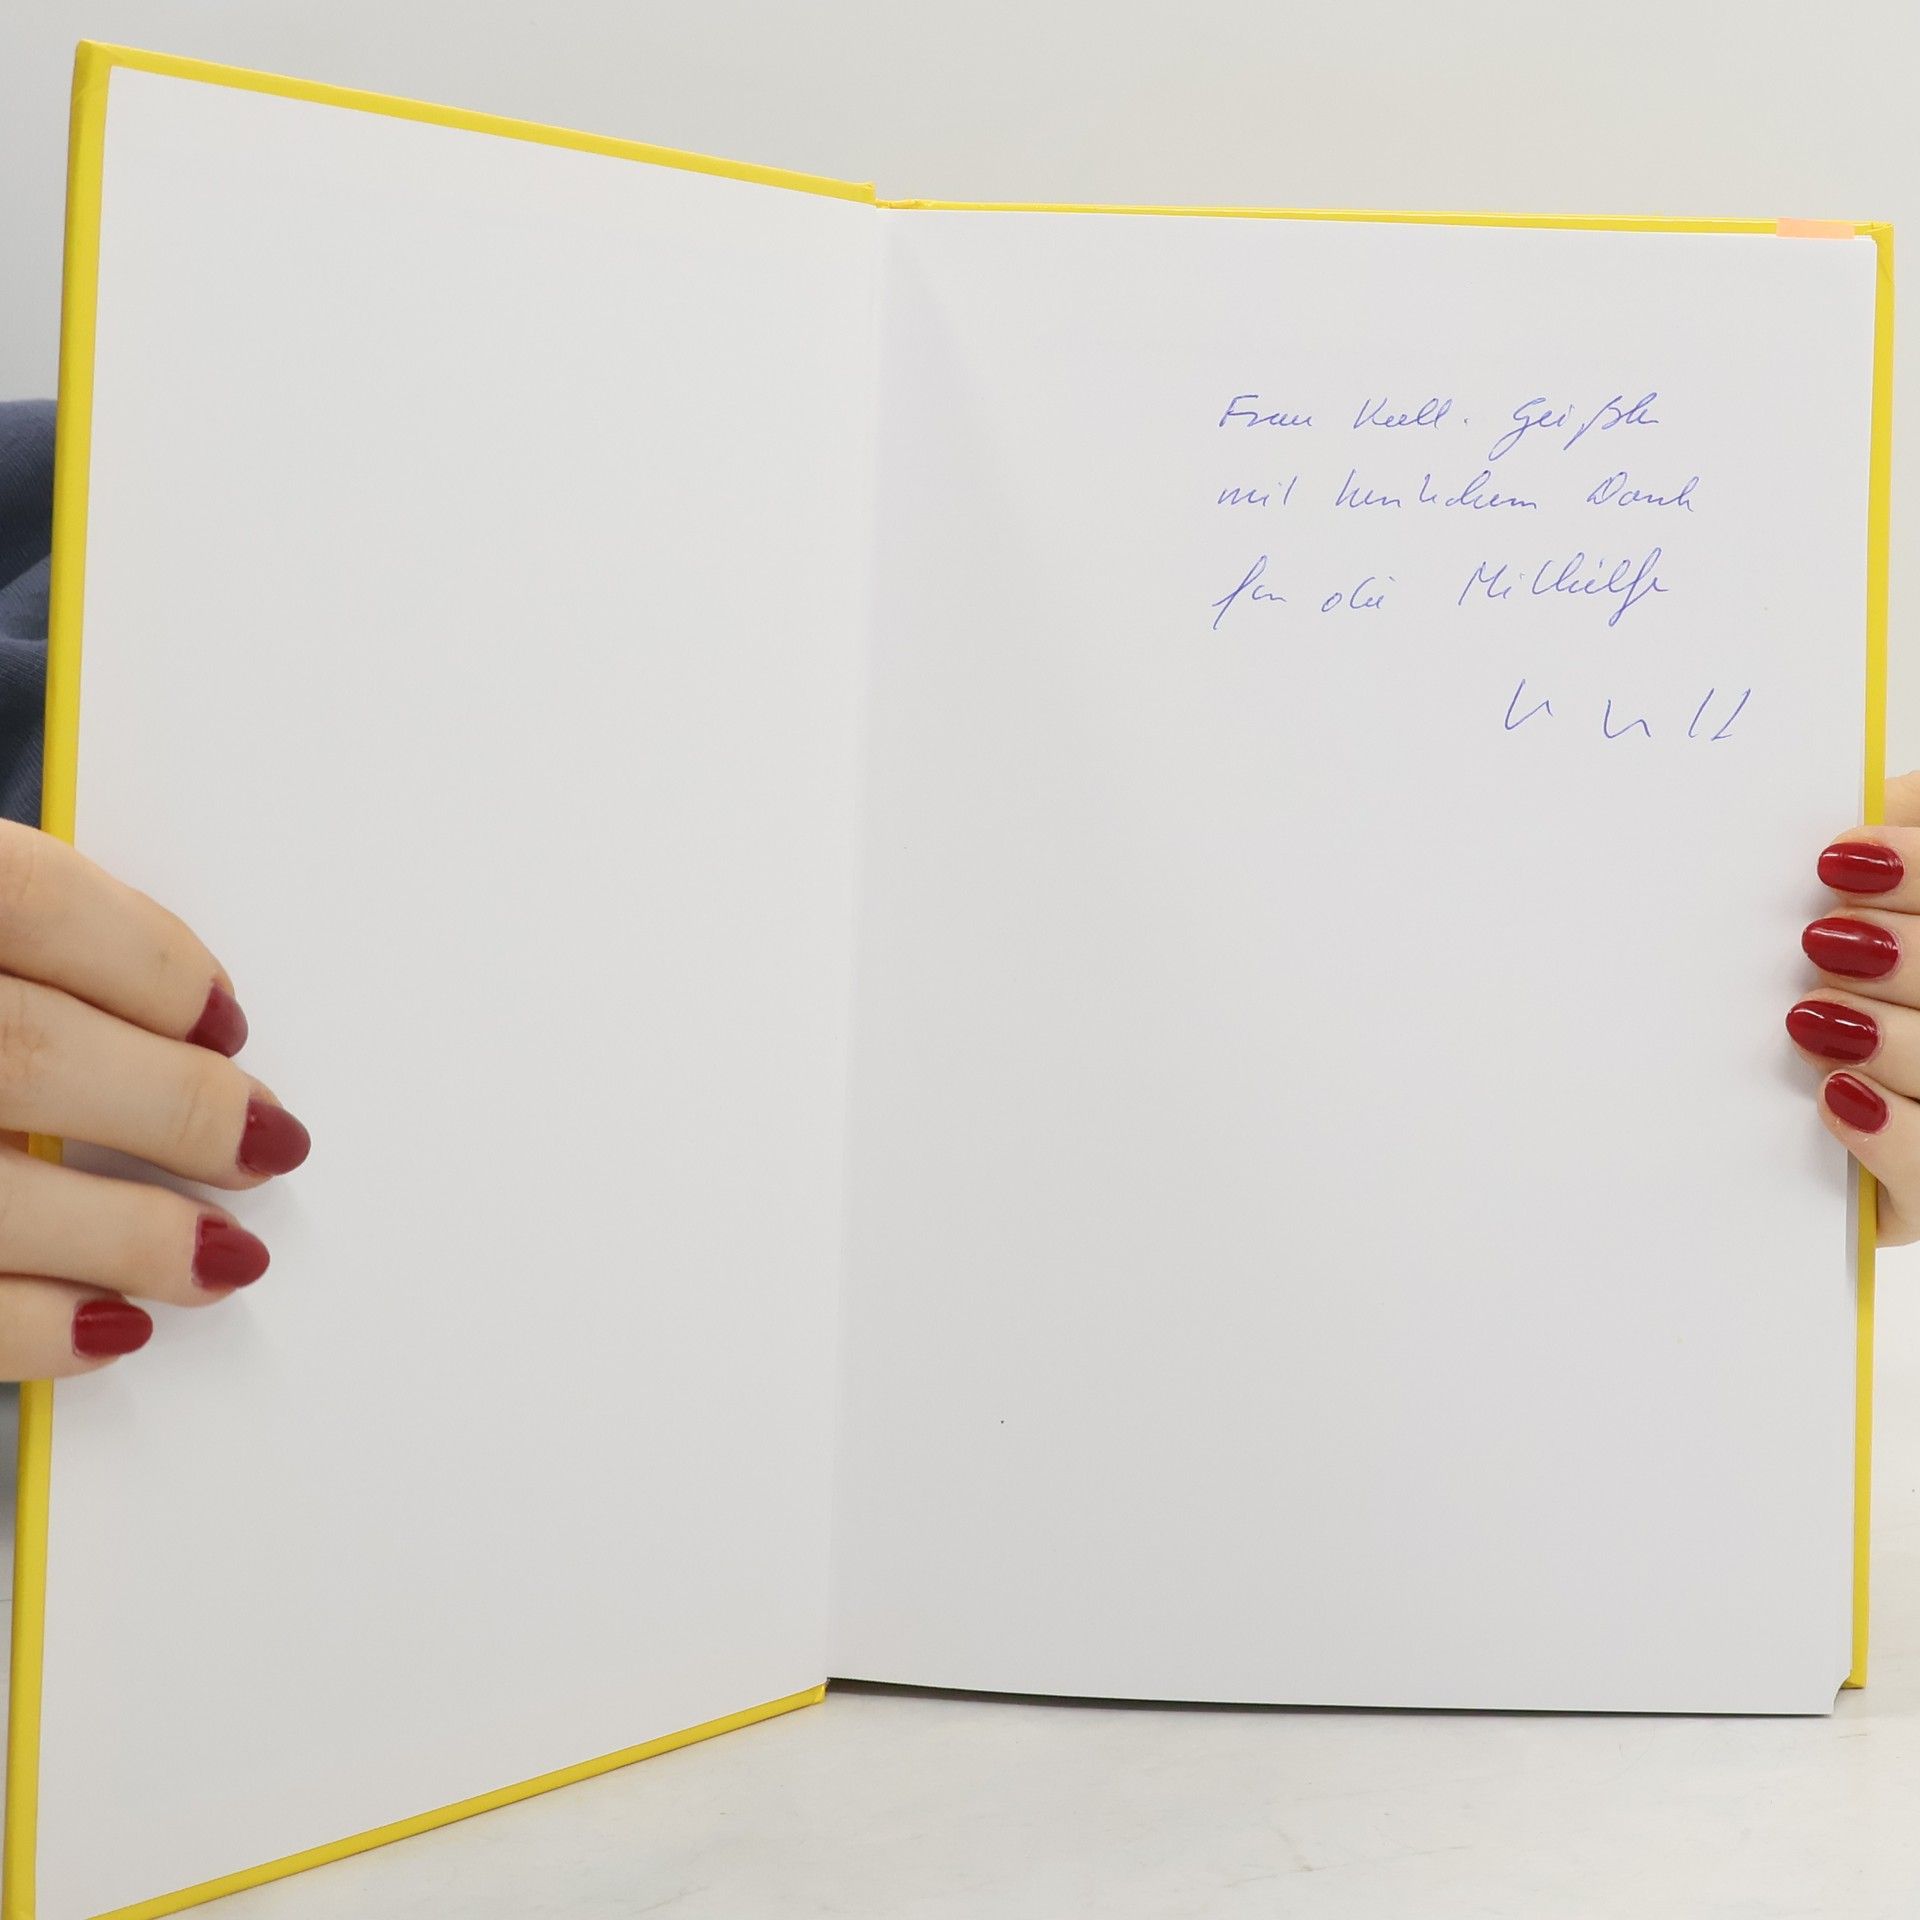 Frau Kall. Geißler
mit herzlichem Dank
für die Mithilfe